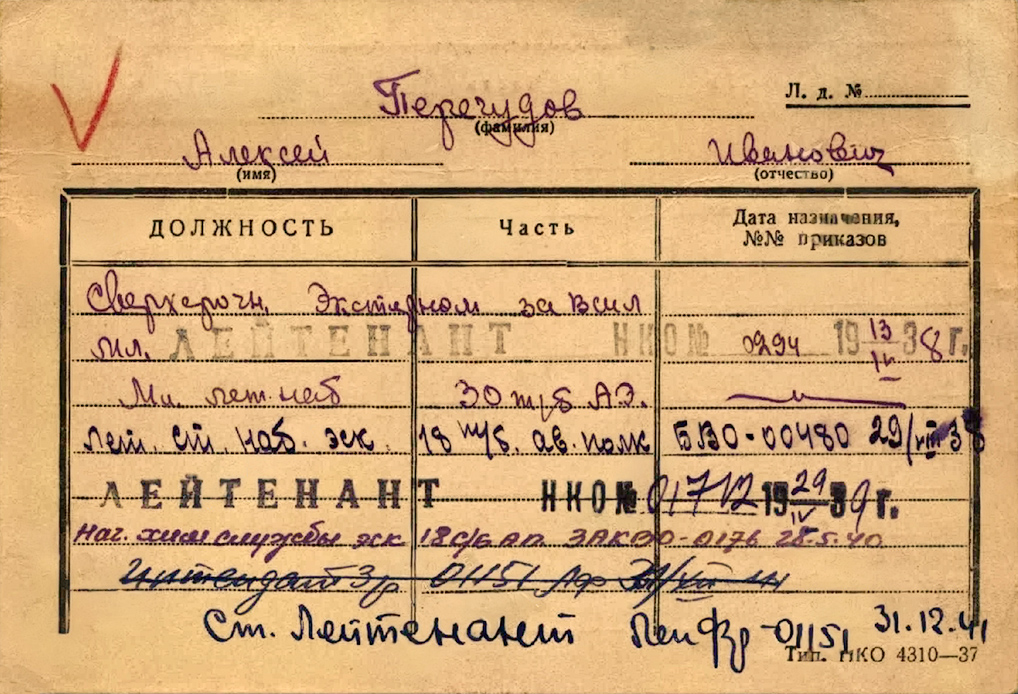 Перегудов
Л. д. №
(фамилия)
Алексей Иванович
(имя) (отчество)
ДОЛЖНОСТЬ Часть Дата назначения,
№№ приказов
Сверхсрочн. Экстерном за ВСШЛ
Мл. ЛЕЙТЕНАНТ НКО№ 0294 19 13/IV 38 г.
Мл. лет. наб 30 т/б АЭ. — " —
Лет. ст. наб. эск. 18 т/б. ав. полк БВО-00480 29/VIII 38
ЛЕЙТЕНАНТ НКО№ 01712 19 29/IV 39 г.
Нач. хим службы эск 18 с/б ап. ЗАКВО-0176 28.5.40
Интендант 3р 01151 31/XII 41
Ст. Лейтенант Лен фр -01151 31.12.41
Тип. НКО 4310—37